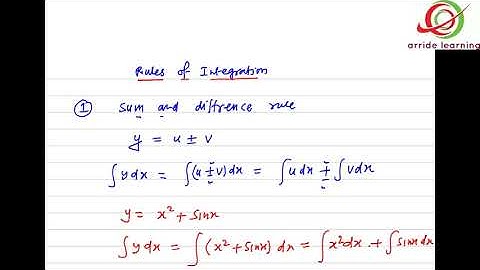 arride learning
Rules of Integration
① Sum and diffrence rule
y = u ± v
∫ y dx = ∫(u ± v) dx = ∫ u dx ± ∫ v dx
y = x² + sinx
∫ y dx = ∫ (x² + sinx) dx = ∫ x² dx + ∫ sinx dx